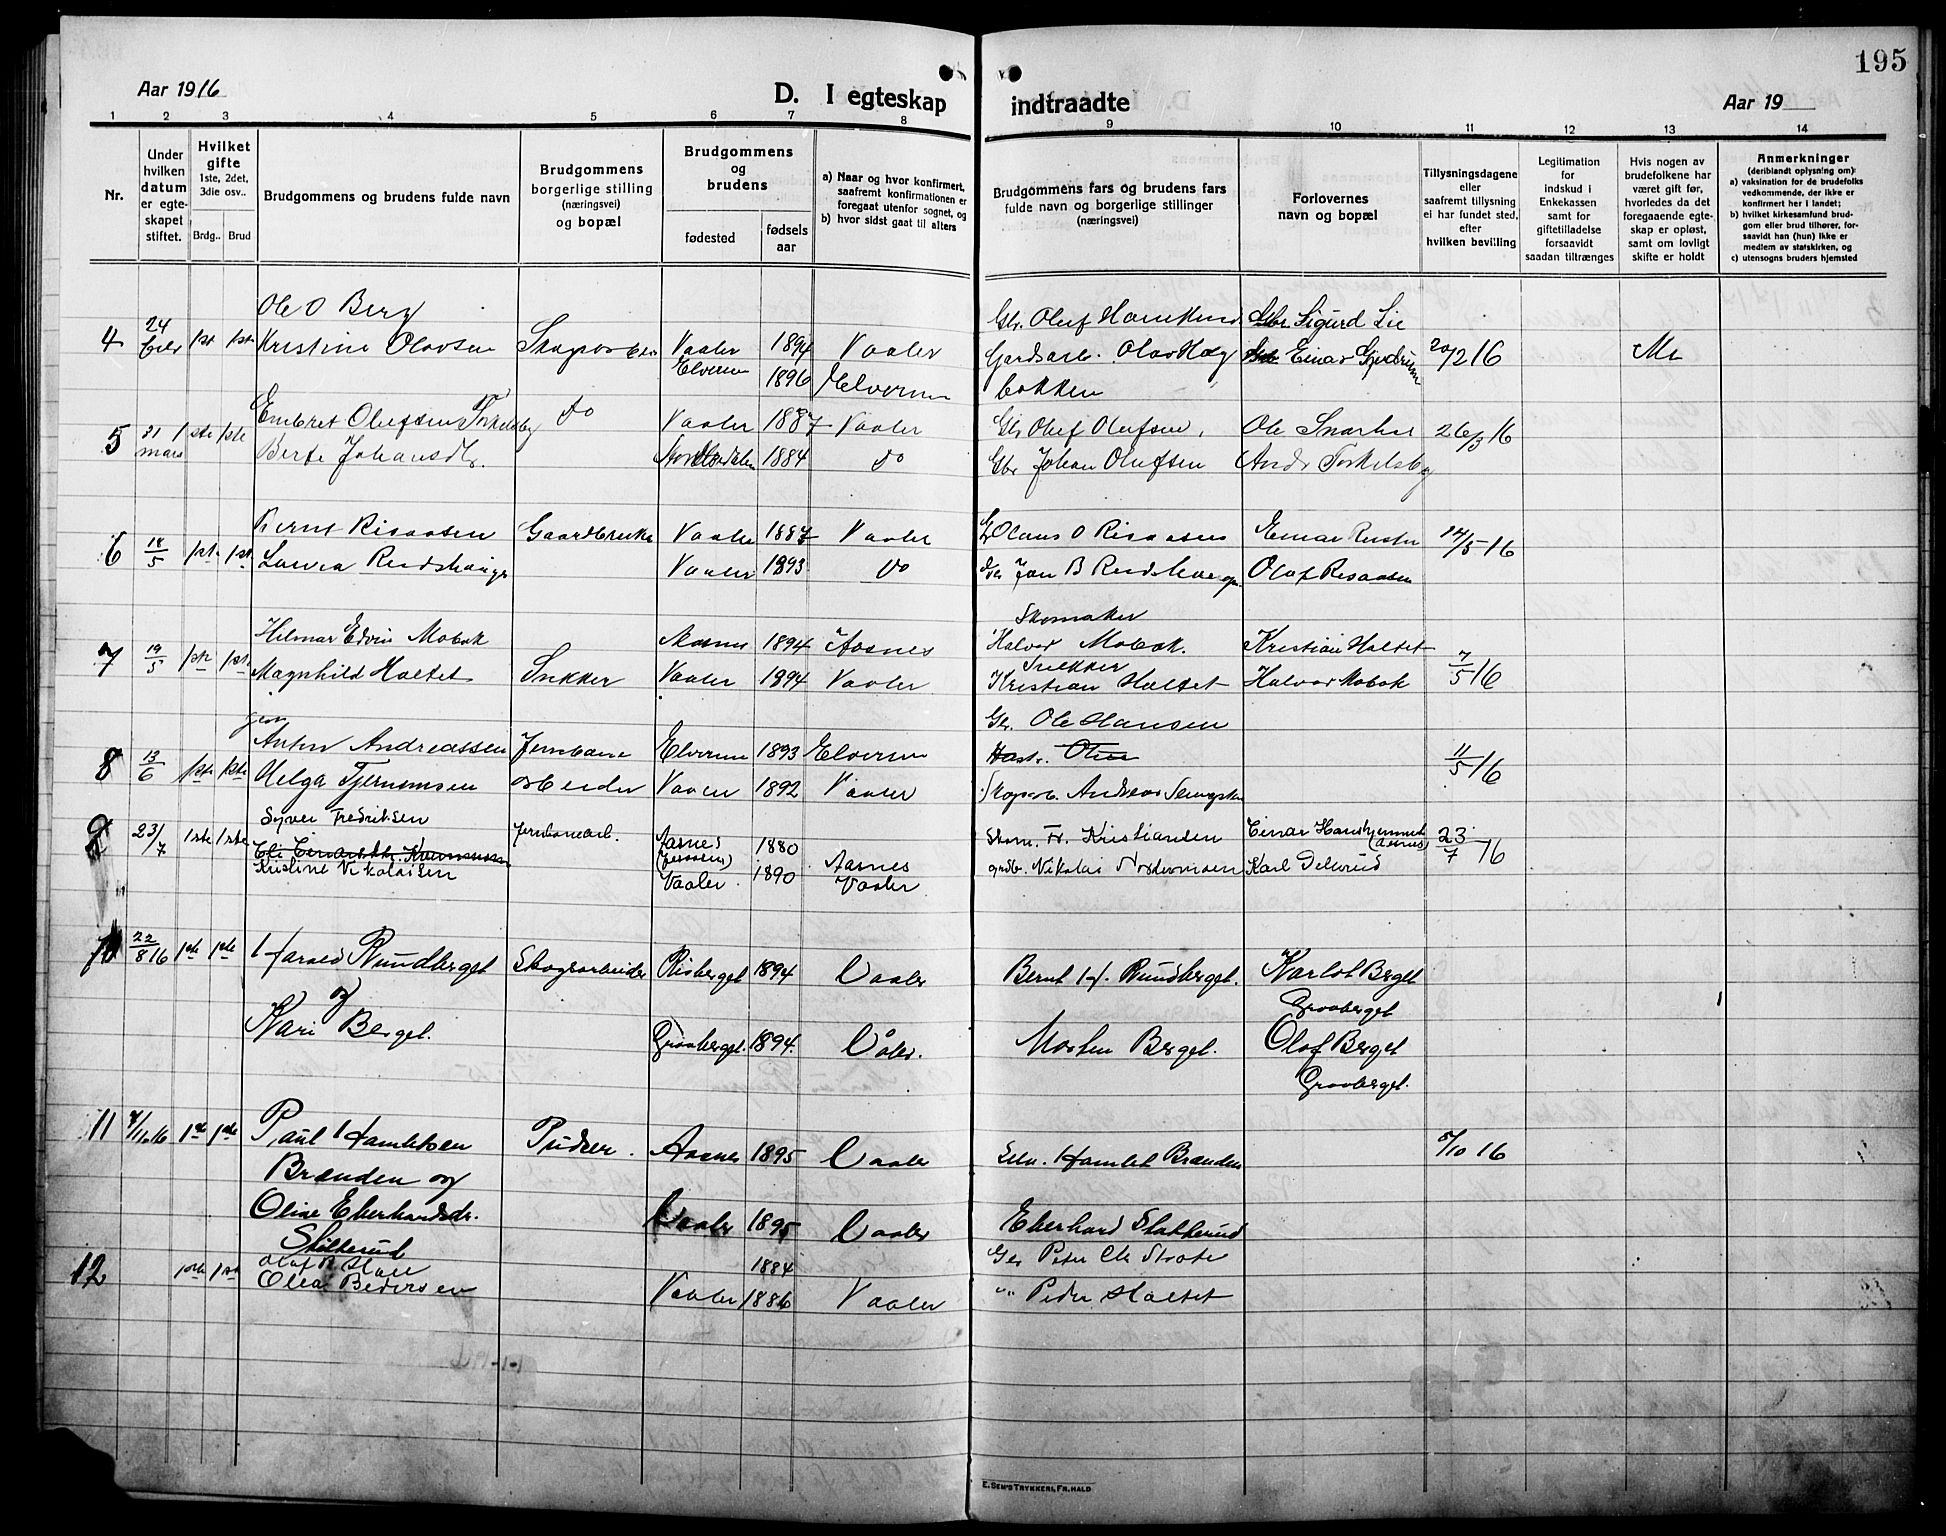 195
Aar 1916
D. I egteskap
indtraadte
Aar 19
1 2 3 4 5 6 7 8
9 10 11 12 13 14
Nr.
Under hvilken datum er egteskapet stiftet.
Hvilket gifte 1ste, 2det, 3die osv..
Brdg.. Brud
Brudgommens og brudens fulde navn
Brudgommens borgerlige stilling (næringsvei) og bopæl
Brudgommens og brudens
fødested
fødsels aar
a) Naar og hvor konfirmert, saafremt konfirmationen er foregaat utenfor sognet, og
b) hvor sidst gaat til alters
Brudgommens fars og brudens fars fulde navn og borgerlige stillinger (næringsvei)
Forlovernes navn og bopæl
Tillysningsdagene eller saafremt tillysning ei har fundet sted, efter hvilken bevilling
Legitimation for indskud i Enkekassen samt for giftetilladelse forsaavidt saadan tiltrænges
Hvis nogen av brudefolkene har været gift før, hvorledes da det foregaaende egteskap er opløst, samt om lovligt skifte er holdt
Anmerkninger (deriblandt oplysning om):
a) vaksination for de brudefolks vedkommende, der ikke er konfirmert her i landet;
b) hvilket kirkesamfund brudgom eller brud tilhører, forsaavidt han (hun) ikke er medlem av statskirken, og
c) utensogns bruders hjemsted
Ole O Berg Sigurd Lie
4 24 1st 1st Kristine Olavsen Vaaler 1894 Vaaler 20/2 16
Elverum 1896 Elverum
5 31 mars 1ste 1ste Embret Olufsen do Vaaler 1887 Vaaler Gbr Oluf Olufsen Ole 26/3 16
1884 do Gbr Johan Olufsen Torkelsby
6 18/5 1st 1st Bernt Risaasen Gaardbruker Vaaler 1887 Vaaler Olaus O Risaasen Einar 14/5 16
Vaaler 1893 do Jan B Olaf Risaasen
Skomaker
7 19/5 1ste 1st Hilmar Edvin Mobæk Aasnes 1894 Aasnes Halvor Mobæk. Kristian Holtet 7/5 16
Snekker
Magnhild Holtet Snekker Vaaler 1894 Vaaler Kristian Holtet Halvor Mobæk
Gbr. Ole Hansen
8 13/6 1ste 1ste Anton Andreassen Jernbane Elverum 1893 Elverum 11/5 16
Helga arbeider Vaaler 1892 Vaaler Andreas
Syver Fredriksen
9 23/7 1ste 1ste Jernbanearb. Aasnes 1880 Aasnes Skom. Fr. Kristiansen Einar 23/7 16
(Aasnes)
Kristine Nikolaisen Vaaler 1890 Vaaler grdb. Nikolai Karl
10 22/8 16 1ste 1ste Harald Rundberget Skogsarbeider Risberget 1894 Vaaler Bernt H. Rundberget. Karlot Berget
og Graaberget
Kari Berget. Graaberget. 1894. Våler. Morten Berget. Olaf Berget
Graaberget.
11 1ste 1ste Paul Hamletsen Pudser. Aasnes 1895 Vaaler Hamlet Brænden 5/10 16
Brænden og
Oline Eberhardsdr. Vaaler 1895 Vaaler Eberhard
12 1ste 1ste Olaf 1884 Gbr Peder
Olea Pedersen Vaaler 1886 Vaaler " Peder Holtet
E. Sem's Trykkeri, Fr.hald